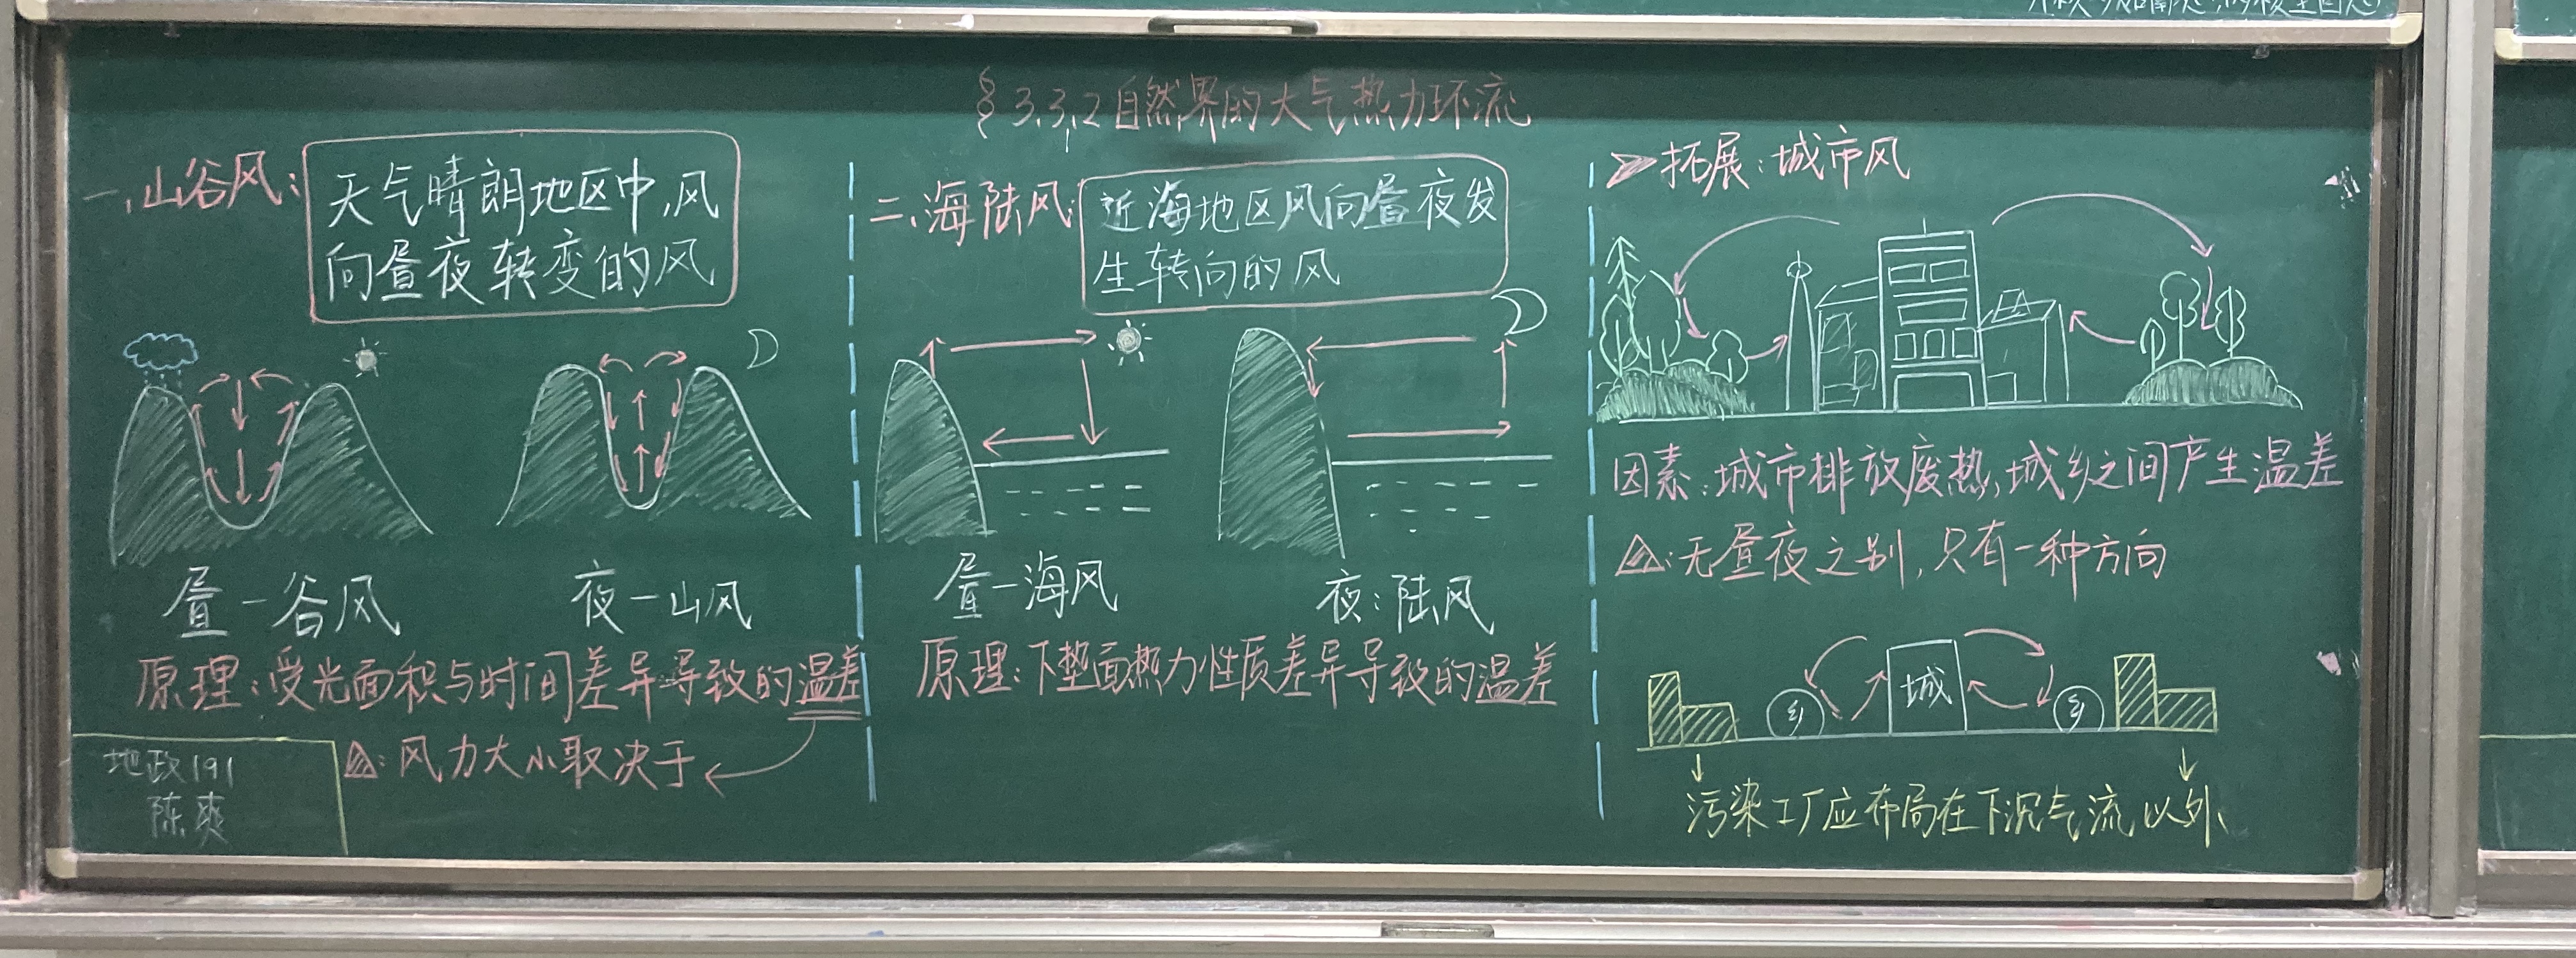 §3.3.2自然界的大气热力环流
一、山谷风:
天气晴朗地区中,风
向昼夜转变的风
昼-谷风
夜-山风
原理:受光面积与时间差异导致的温差
△:风力大小取决于
地政191
陈爽
二、海陆风:
近海地区风向昼夜发
生转向的风
昼-海风
夜:陆风
原理:下垫面热力性质差异导致的温差
拓展:城市风
因素:城市排放废热,城乡之间产生温差
△:无昼夜之别,只有一种方向
乡
城
乡
污染工厂应布局在下沉气流以外